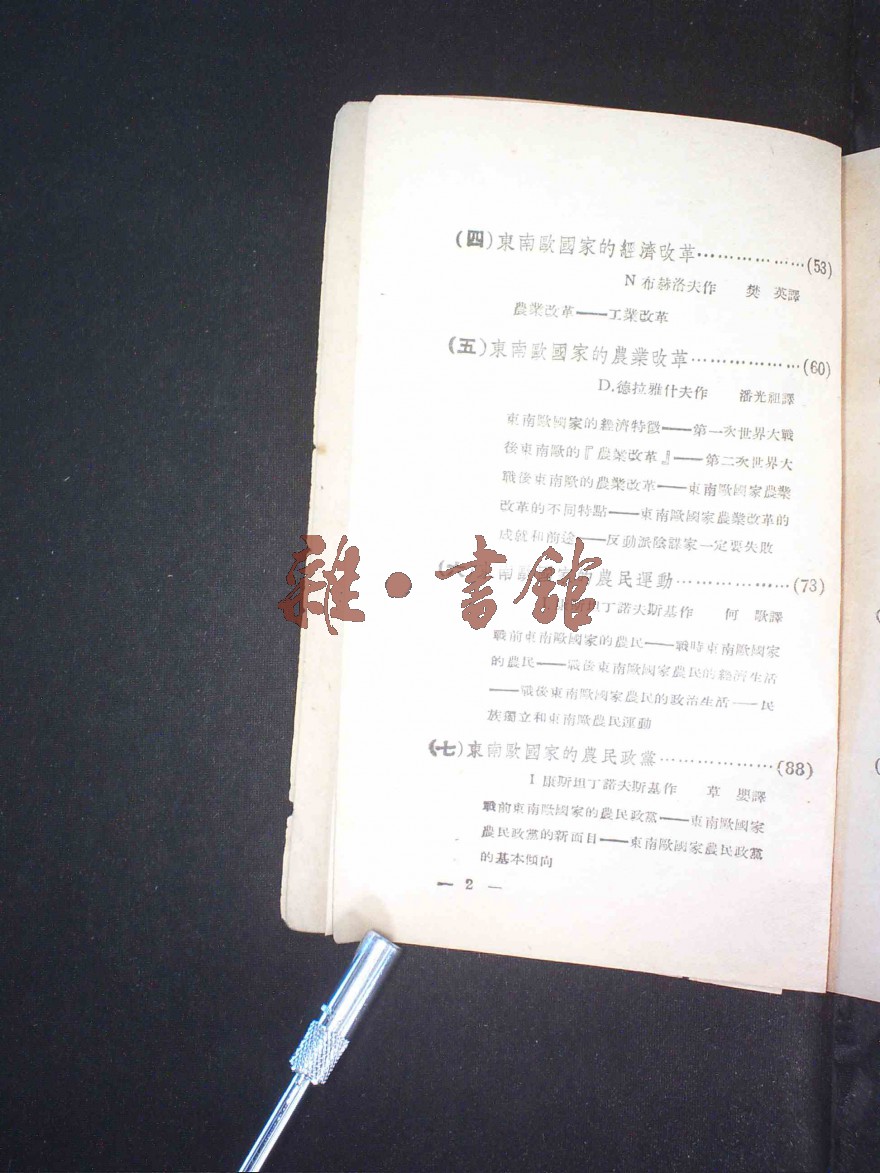 (四)東南歐國家的經濟改革………………(53)
N 布赫洛夫作 樊 英譯
農業改革——工業改革
(五)東南歐國家的農業改革………………(60)
D.德拉雅什夫作 潘光祖譯
東南歐國家的經濟特徵——第一次世界大戰
後東南歐的『農業改革』——第二次世界大
戰後東南歐的農業改革——東南歐國家農業
改革的不同特點——東南歐國家農業改革的
成就和前途——反動派陰謀家一定要失敗
南 家的農民運動………………(73)
坦丁諾夫斯基作 何 歌譯
戰前東南歐國家的農民——戰時東南歐國家
的農民——戰後東南歐國家農民的經濟生活
——戰後東南歐國家農民的政治生活——民
族獨立和東南歐農民運動
(七)東南歐國家的農民政黨………………(88)
I 康斯坦丁諾夫斯基作 草 嬰譯
戰前東南歐國家的農民政黨——東南歐國家
農民政黨的新面目——東南歐國家農民政黨
的基本傾向
— 2 —
雜·書館